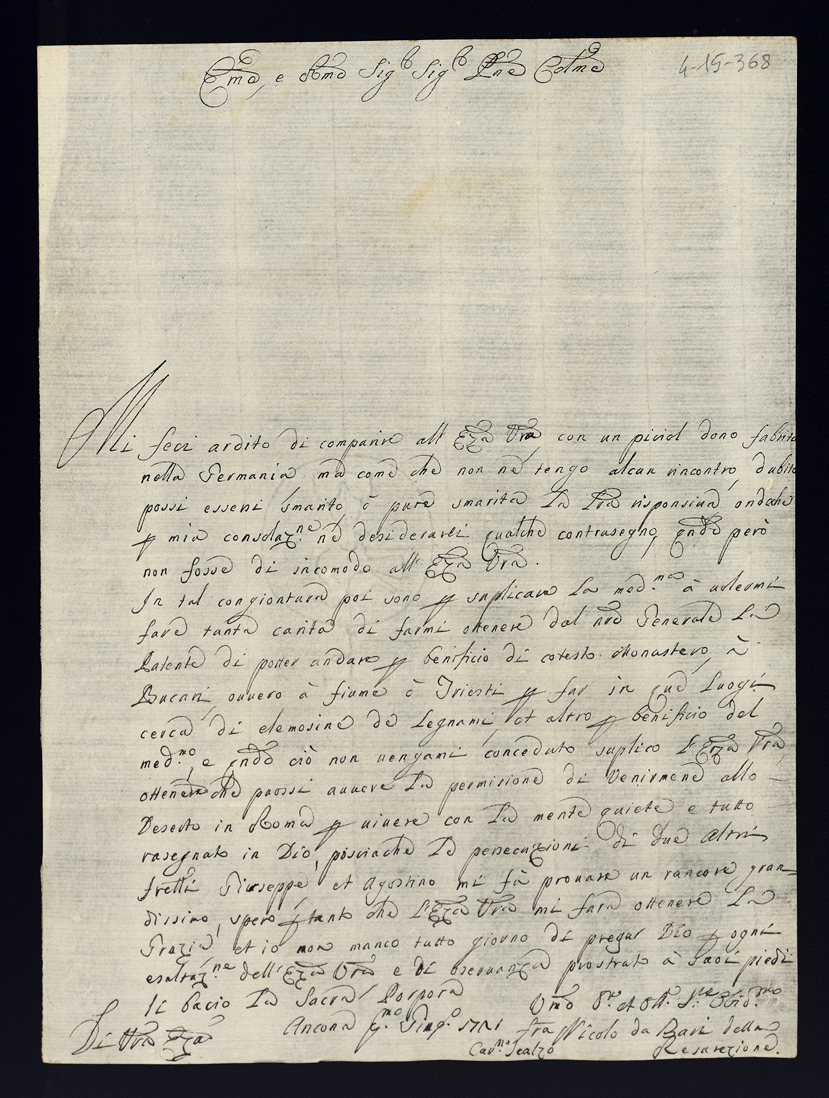 Em̃o, e Rm̃o Sig.r Sig.r Pñe Colm̃o
4-15-368
Mi feci ardito di comparire all' Ecc̃za Vrã con un piciol dono fabrito
nella Germania ma come che non ne tengo alcun rincontro dubito
possi essersi smarito ò pure smarita la Sua risponsiva ondeche
p mia consolaz.ne ne desiderarei qualche contrasegno, qndo però
non fosse di incomodo all' Ecc̃za Vrã.
In tal congiontura poi sono p suplicare la med.ma à volermi
fare tanta carità di farmi ottenere dal nrõ Generale La
Patente di poter andare p benificio di cotesto Monastero, à
Bucari, ovvero à fiume ò Triesti p far in que Luogi
cerca di elemosine de Legnami, et altro p benificio del
med.mo, e qndo ciò non vengami conceduto suplico L'Ecc̃za Vrã
ottenere che possi avvere La permisione di Venirmene allo
Deserto in Roma p vivere con La mente quiete e tutto
rasegnato in Dio, posciache Le persecuzioni di due altri
fretti Giuseppe, et Agostino mi fà provare un rancore gran=
dissimo, spero p tanto che L'Ecc̃za Vrã mi farà ottenere La
Grazia, et io non manco tutto giorno di pregar Dio p ogni
esaltaz.ne dell' Ecc̃za Vrã e di oservanza prostrato à Suoi piedi
li bacio La Sacra Porpora
Di Vrã Ecc̃za
Ancona p.mo Giug.o 1721
Um̃o D.e et Ob.o S.re Obid.mo
fra Nicolo da Bari della
Resurezione.
Car.no Scalzo